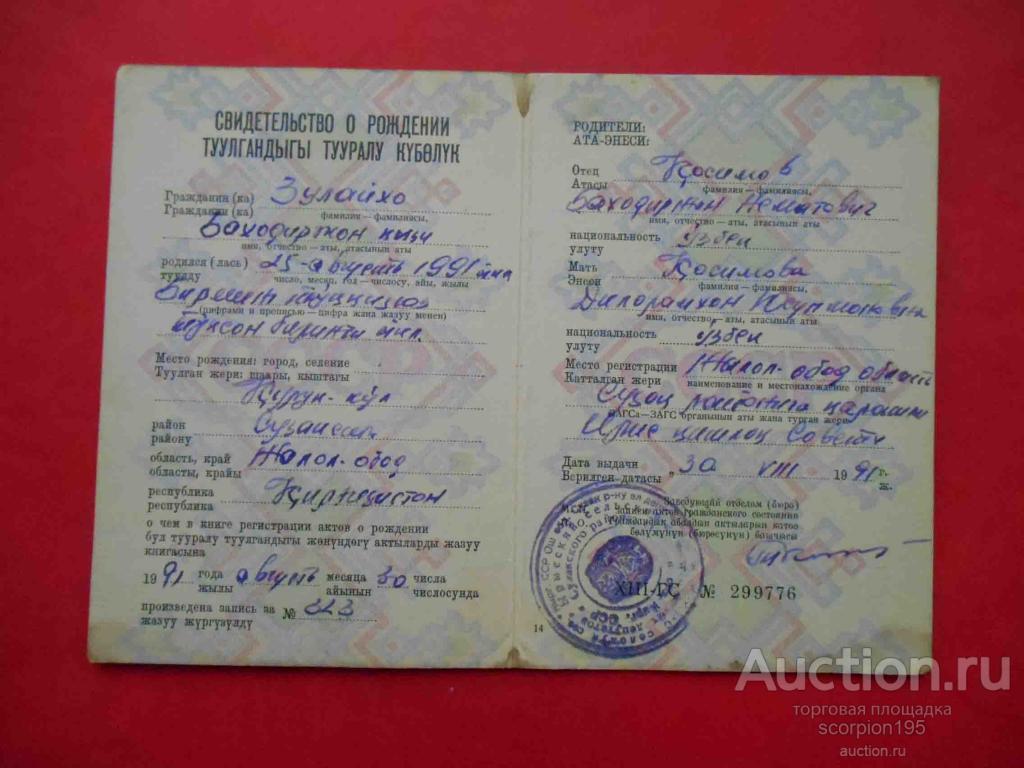 СВИДЕТЕЛЬСТВО О РОЖДЕНИИ
ТУУЛГАНДЫГЫ ТУУРАЛУ КҮБӨЛҮК
Гражданин (ка) Зулайхо
Гражданин (ка) фамилия — фамилиясы,
Баходиржон кизи
имя, отчество — аты, атасынын аты
родился (лась) 25 август 1991
туулду число, месяц, год — числосу, айы, жылы
(цифрами и прописью — цифра жана жазуу менен)
Место рождения: город, селение
Туулган жери: шаары, кыштагы
район
району
область, край Жалол-обод
областы, крайы
республика Қирғизистон
республика
о чем в книге регистрации актов о рождении
бул тууралу туулгандыгы жөнүндөгү актыларды жазуу
книгасына
1991 года август месяца 30 числа
жылы айынын числосунда
произведена запись за № 323
жазуу жүргүзүлдү
РОДИТЕЛИ:
АТА-ЭНЕСИ:
Отец Қосимов
Атасы фамилия — фамилиясы,
Баходиржон Нематович
имя, отчество — аты, атасынын аты
национальность ўзбек
улуту
Мать Қосимова
Энеси фамилия — фамилиясы,
имя, отчество — аты, атасынын аты
национальность ўзбек
улуту
Место регистрации Жалол-обод область
Катталган жери наименование и местонахождение органа
Сузоқ
ЗАГСа — ЗАГС органынын аты жана турган жери
қишлоқ Совети
Дата выдачи „30 VIII 1991 г.
Берилген датасы ж.
14
Заведующий отделом (бюро)
записи актов гражданского состояния
Граждандык абалдын актыларын каттоо
бөлүмүнүн (бюросунун) башчысы
М. П.
XIII-ГС № 299776
Auction.ru
торговая площадка
scorpion195
auction.ru